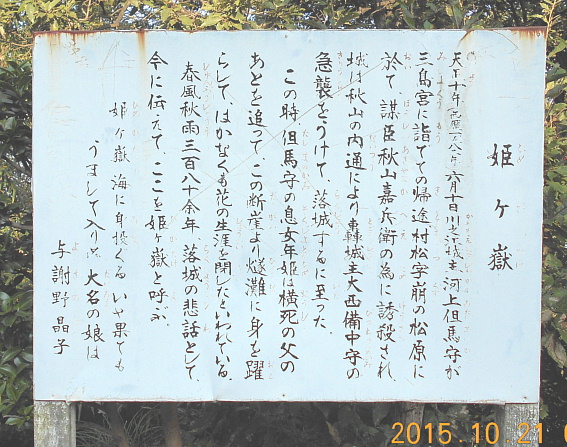 姫ヶ嶽
天正十年六月十日川之江城主河上但馬守が
三島宮に詣でての帰途村松字崩の松原に
於て、謀臣秋山嘉兵衛の為に誘殺され、
城は秋山の内通により轟城主大西備中守の
急襲をうけて、落城するに至った。
この時但馬守の息女年姫は横死の父の
あとを追って、この断崖より燧灘に身を躍
らして、はかなくも花の生涯を閉じたといわれている。
春風秋雨三百八十余年、落城の悲話として、
今に伝えて、ここを姫ヶ嶽と呼ぶ
姫ヶ嶽海に身投ぐるいや果ても
うまして入りぬ大名の娘は
与謝野晶子
2015 10 21